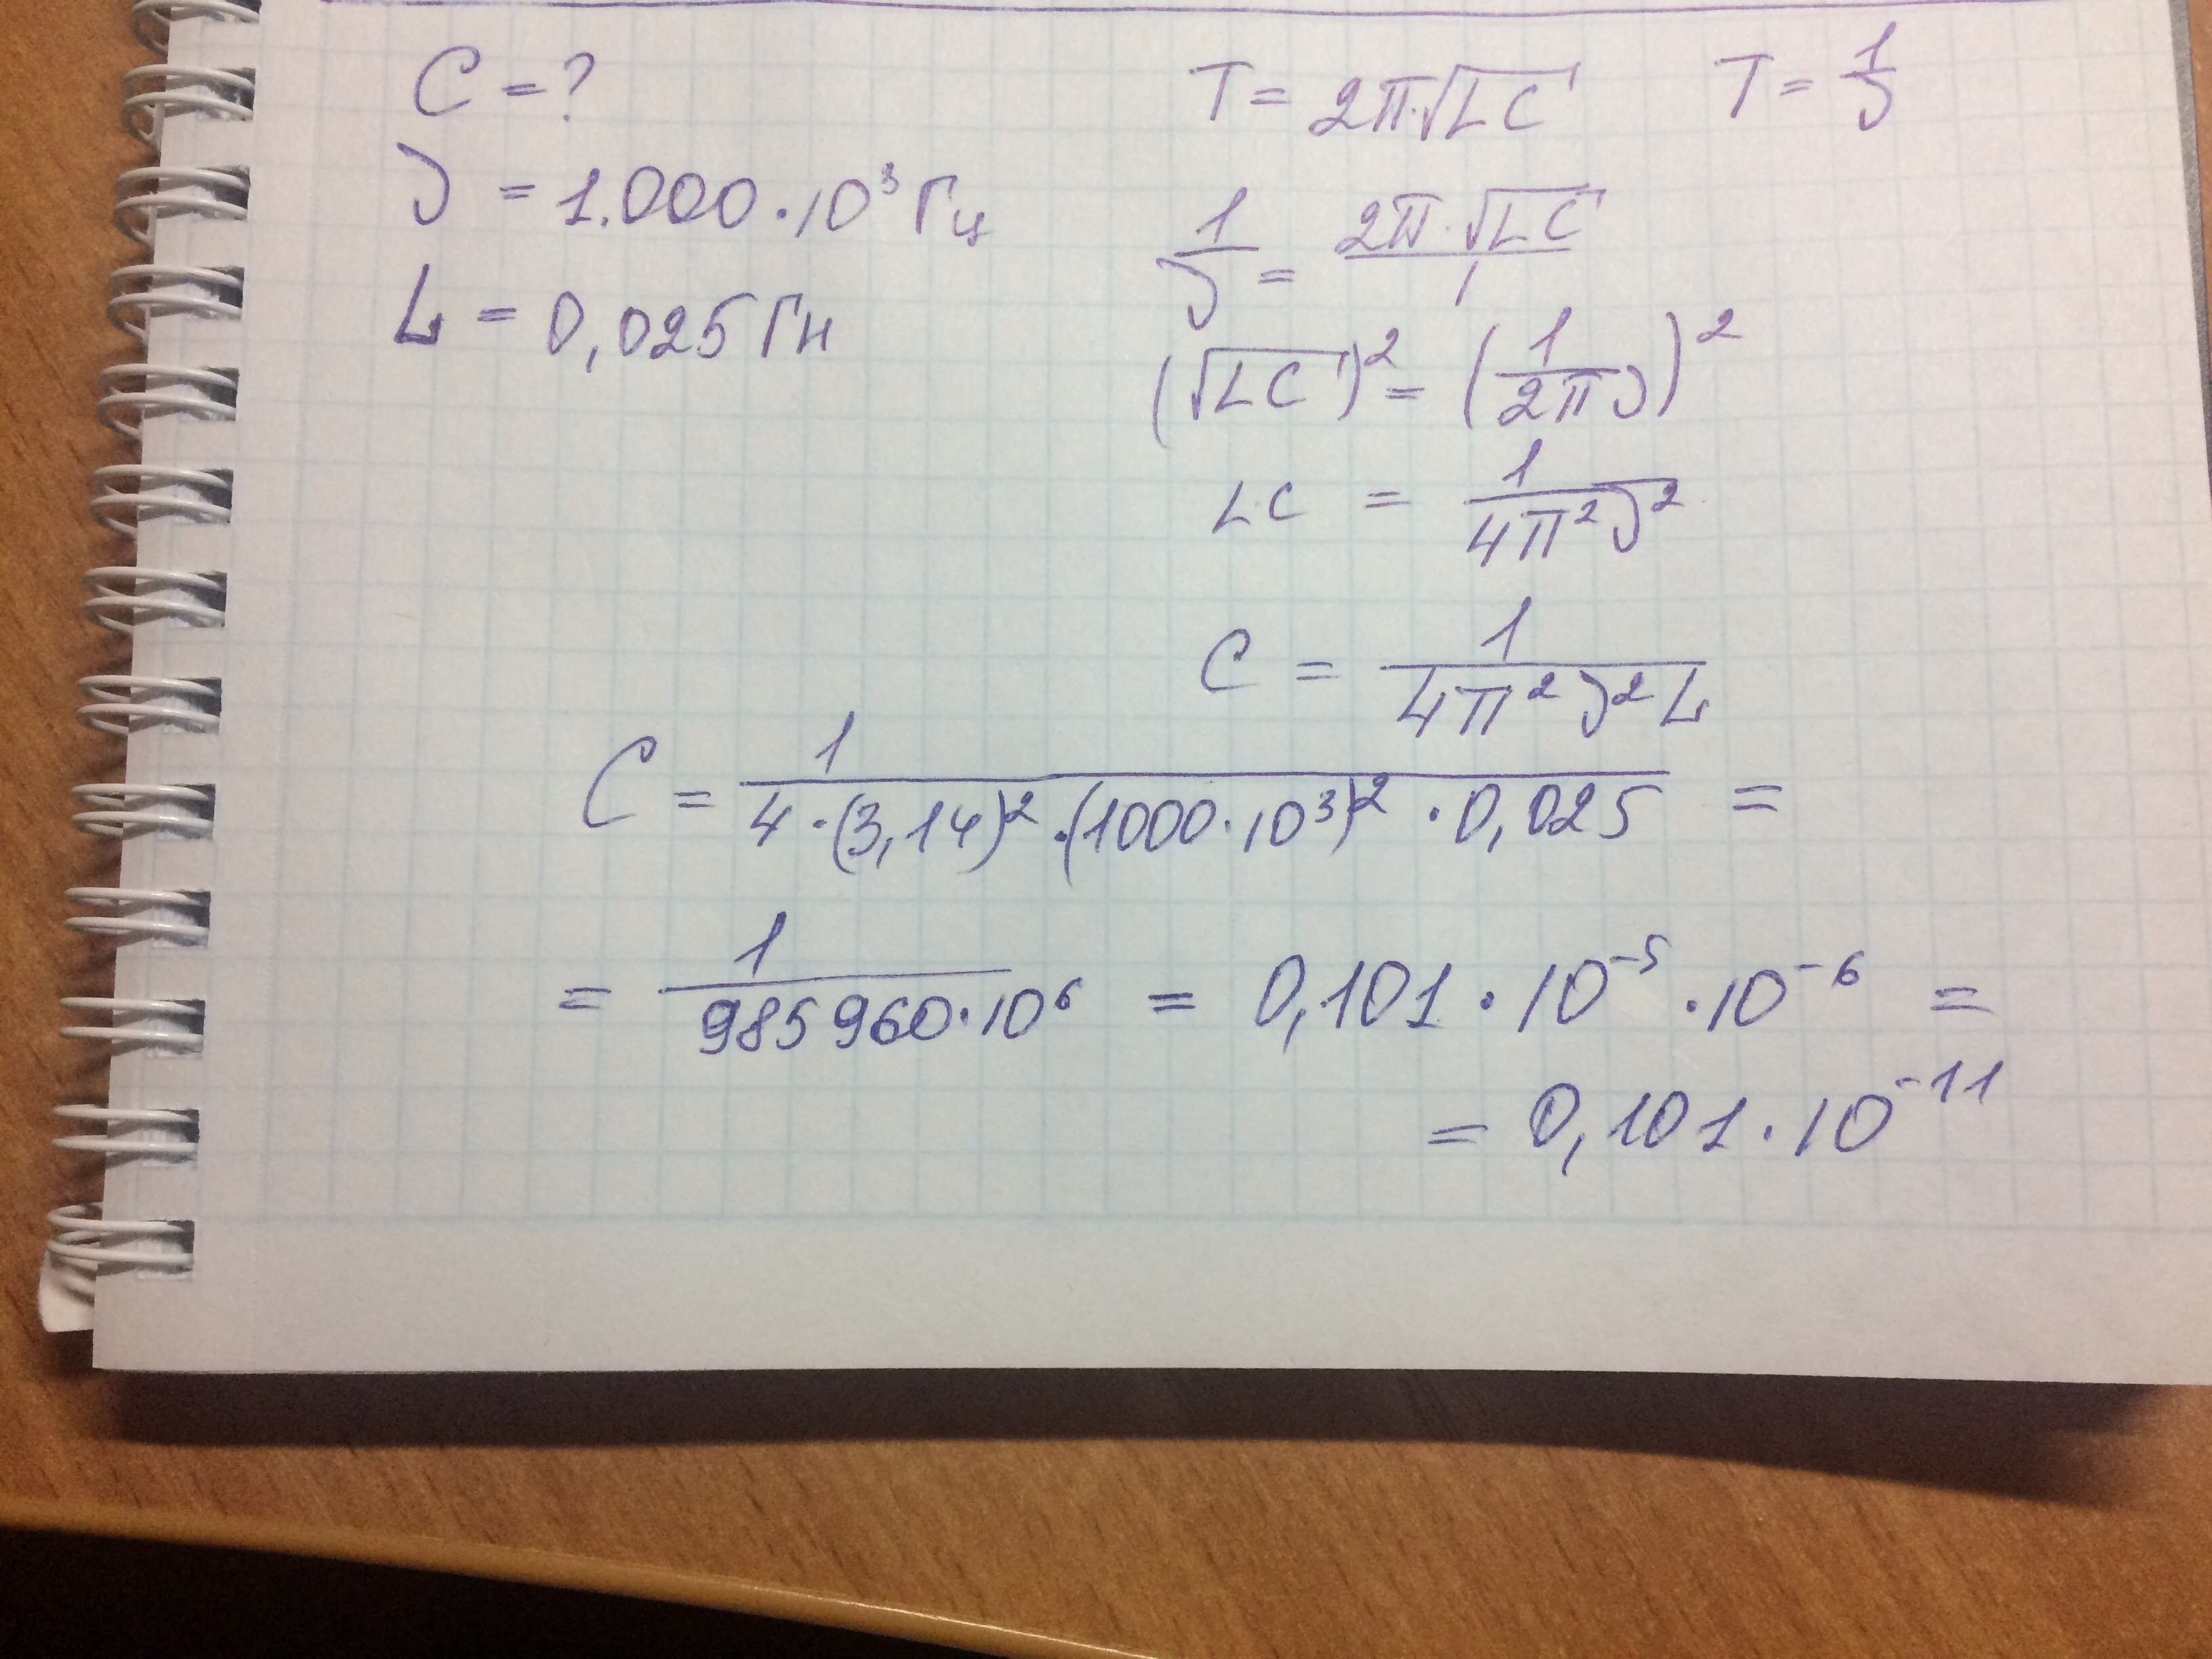 C = ?
ν = 1.000 · 10³ Гц
L = 0,025 Гн
T = 2π·√LC T = 1/ν
1/ν = 2π·√LC/1
(√LC)² = (1/2πν)²
LC = 1/4π²ν²
C = 1/4π²ν²L
C = 1/4·(3,14)²·(1000·10³)²·0,025 =
= 1/985960·10⁶ = 0,101 · 10⁻⁵ · 10⁻⁶ =
= 0,101 · 10⁻¹¹